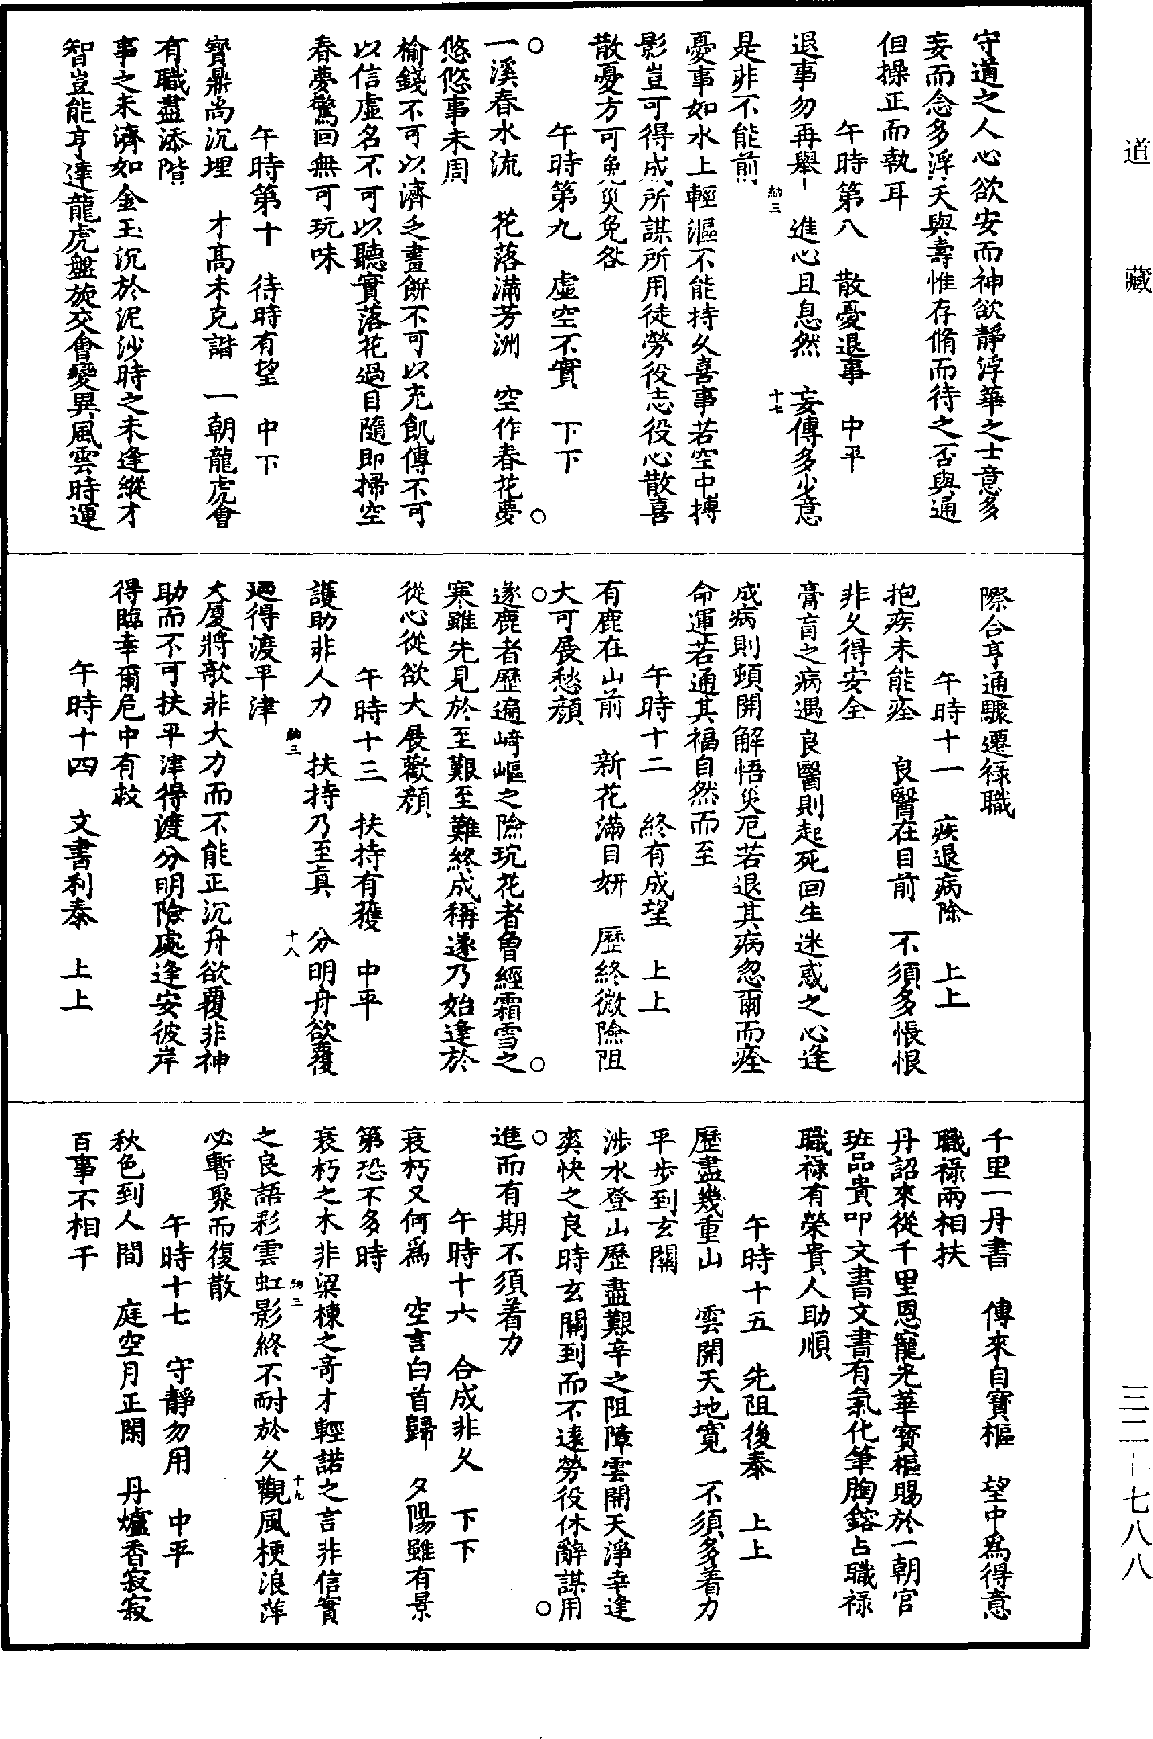 道藏
三二－七八八
守道之人心欲安而神欲靜浮華之士意多
妄而念多浮夭與壽惟存脩而待之否與通
但操正而執耳
午時第八　散憂退事　中平
退事勿再舉　進心且息然　妄傳多少意
是非不能前
納三　十七
憂事如水上輕漚不能持久喜事若空中搏
影豈可得成所謀所用徒勞役志役心散喜
散憂方可免災免咎
午時第九　虛空不實　下下
○　○
一溪春水流　花落滿芳洲　空作春花夢
悠悠事未周
榆錢不可以濟乏畫餅不可以充飢傳不可
以信虛名不可以聽實落花過目隨即掃空
春夢驚回無可玩味
午時第十　待時有望　中下
寶鼎尚沉埋　才高未克諧　一朝龍虎會
有職盡添階
事之未濟如金玉沉於泥沙時之未逢縱才
智豈能亨達龍虎盤旋交會變異風雲時運
際合亨通驟遷祿職
午時十一　疾退病除　上上
抱疾未能痊　良醫在目前　不須多悵恨
非久得安全
膏肓之病遇良醫則起死回生迷惑之心逢
成病則頓開解悟災厄若退其病忽爾而痊
命運若通其福自然而至
午時十二　終有成望　上上
有鹿在山前　新花滿目妍　歷終微險阻
大可展愁顏
○　○
逐鹿者歷遍崎嶇之險玩花者魯經霜雪之
寒雖先見於至艱至難終成稱遂乃始逢於
從心從欲大展歡顏
午時十三　扶持有穫　中平
護助非人力　扶持乃至真　分明舟欲覆
廼得渡平津
納三　十八
大廈將欹非大力而不能正沉舟欲覆非神
助而不可扶平津得渡分明險處逢安彼岸
得臨幸爾危中有救
午時十四　文書利泰　上上
千里一丹書　傳來自寶樞　望中為得意
職祿兩相扶
丹詔來從千里恩寵光華寶樞賜於一朝官
班品貴叩文書文書有氣化筆胸鎔占職祿
職祿有榮貴人助順
午時十五　先阻後泰　上上
歷盡幾重山　雲開天地寬　不須多着力
平步到玄關
涉水登山歷盡艱辛之阻障雲開天淨幸逢
爽快之良時玄關到而不遠勞役休辭謀用
○　○
進而有期不須着力
午時十六　合成非久　下下
衰朽又何為　空言白首歸　夕陽雖有景
第恐不多時
衰朽之木非梁棟之奇才輕諾之言非信實
之良語彩雲虹影終不耐於久觀風梗浪萍
納三　十九
必暫聚而復散
午時十七　守靜勿用　中平
秋色到人間　庭空月正閑　丹爐香寂寂
百事不相干